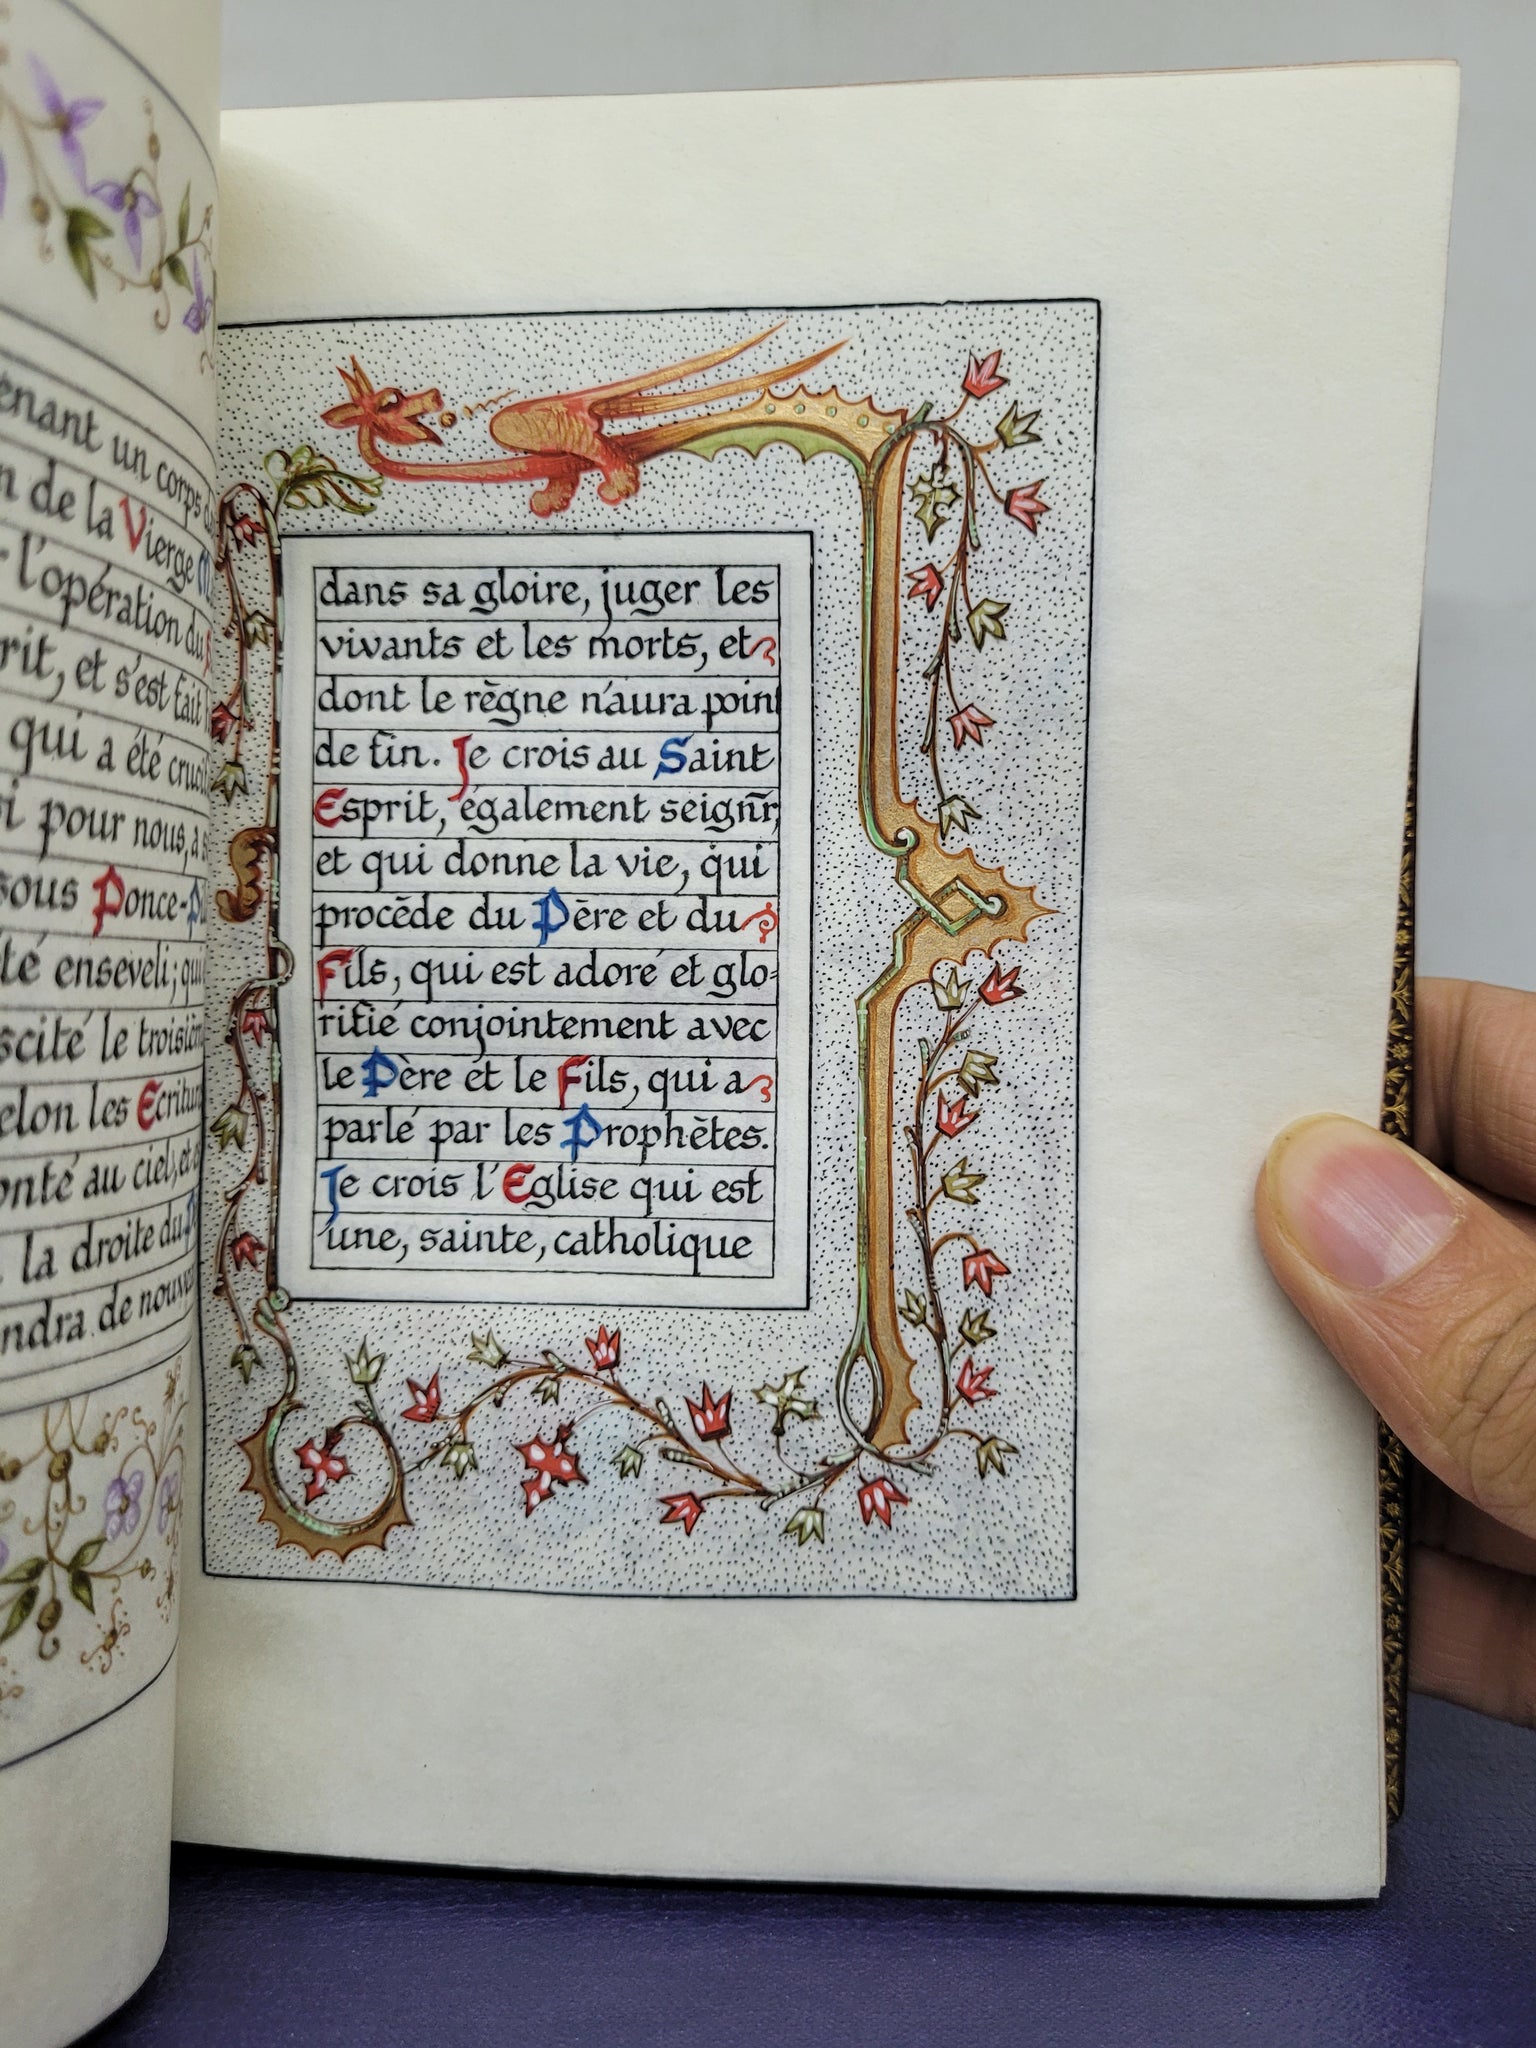 enant un corps
n de la Vierge
l'opération du
rit, et s'est fait
qui a été
i pour nous, a
sous Ponce-
té enseveli; qui
scité le
elon les
onté au ciel, et
la droite du
ndra de
dans sa gloire, juger les
vivants et les morts, et
dont le règne n'aura point
de fin. Je crois au Saint
Esprit, également seign̄r,
et qui donne la vie, qui
procède du Père et du
Fils, qui est adoré et glo=
rifié conjointement avec
le Père et le Fils, qui a
parlé par les Prophètes.
Je crois l'Eglise qui est
une, sainte, catholique